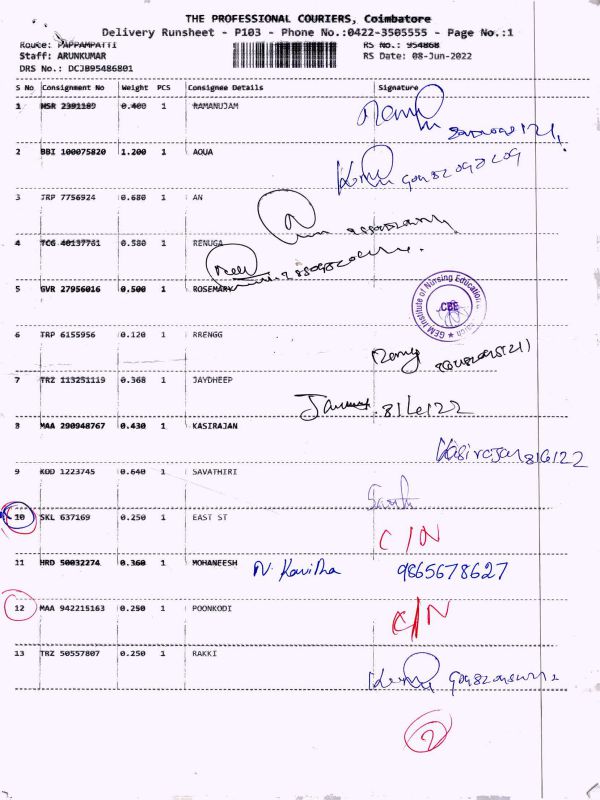 THE PROFESSIONAL COURIERS, Coimbatore
Delivery Runsheet - P103 - Phone No.:0422-3505555 - Page No.:1
Route: PAPPAMPATTI
RS No.: 954868
Staff: ARUNKUMAR
RS Date: 08-Jun-2022
DRS No.: DCJB95486801
S No Consignment No Weight PCS Consignee Details Signature
1 MSR 2391189 0.400 1 RAMANUJAM
2 BBI 100075820 1.200 1 AOUA
3 JRP 7756924 0.680 1 AN
4 TCG 40137761 0.580 1 RENUGA
5 GVR 27956016 0.500 1 ROSEMARY
GEM Institute of Nursing Education CBE
6 TRP 6155956 0.120 1 RRENGG
7 TRZ 113251119 0.368 1 JAYDHEEP
8/6/22
8 MAA 290948767 0.430 1 KASIRAJAN
Kasirajan 8/6/22
9 KOD 1223745 0.640 1 SAVATHIRI
10 SKL 637169 0.250 1 EAST ST C/N
11 HRD 50032274 0.360 1 MOHANEESH N. Kavitha 9865678627
12 MAA 942215163 0.250 1 POONKODI C/N
13 TRZ 50557807 0.250 1 RAKKI
2